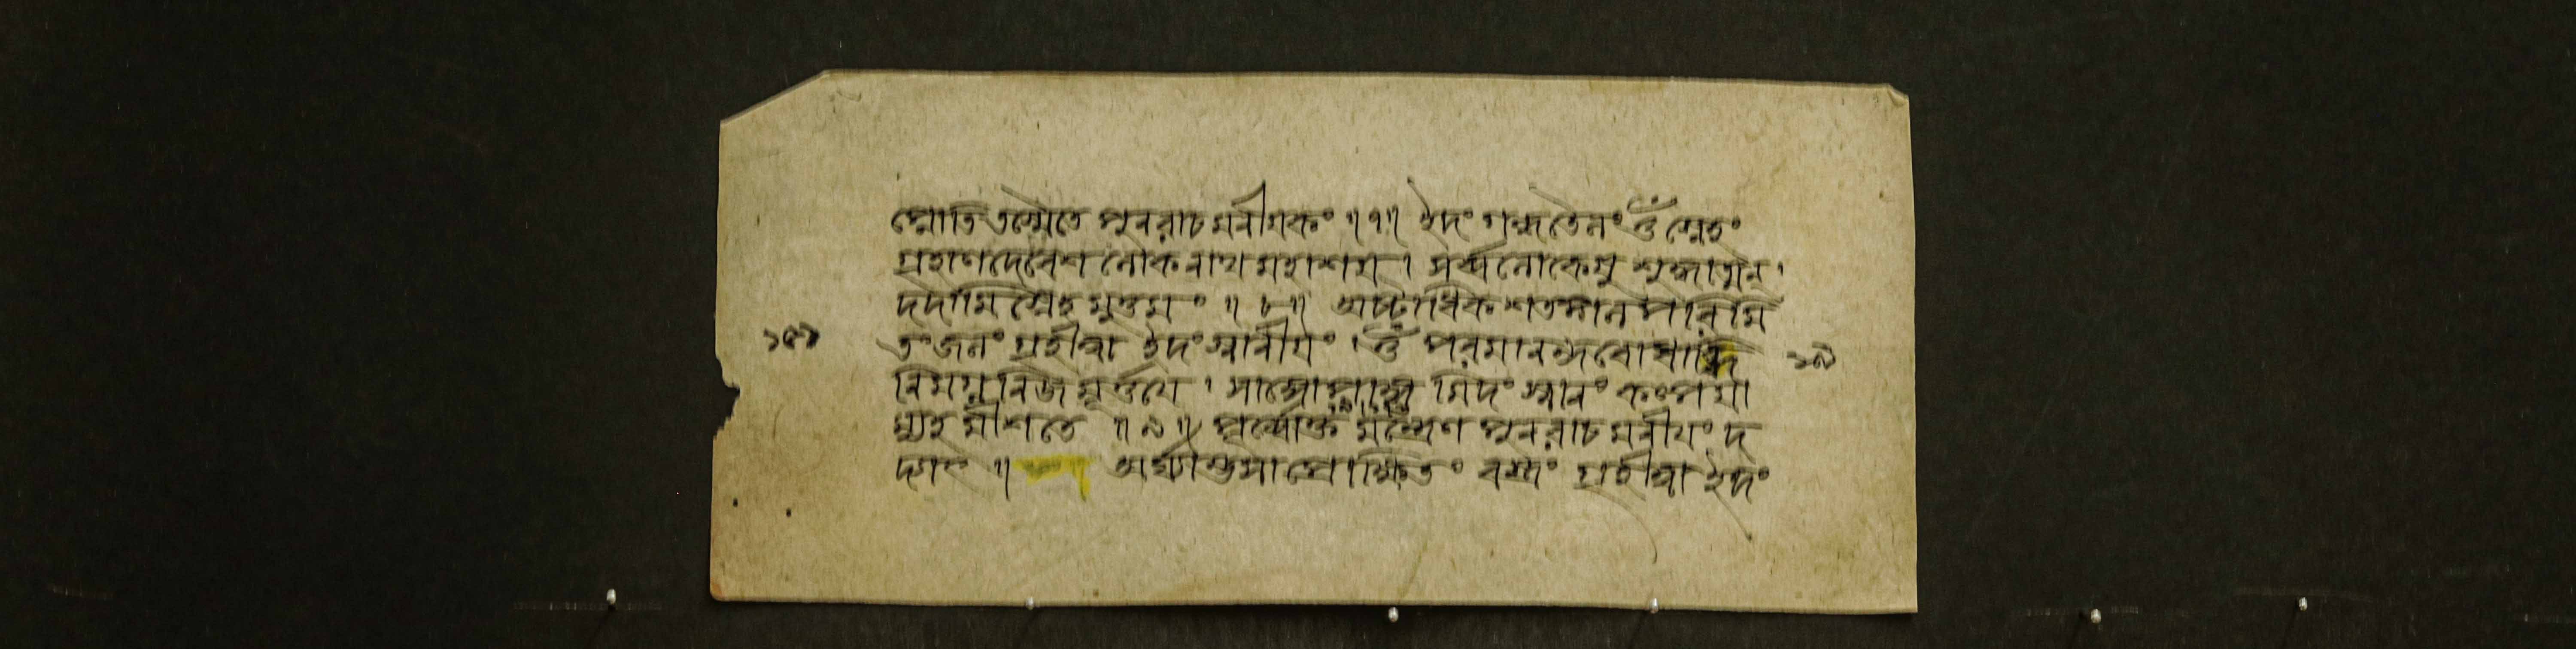 প্নোতি তস্মৈতে পুনরাচমনীয়কং ॥৭॥ ইদং গন্ধতৈলং ওঁ স্নেহং
গৃহাণ দেবেশ লোকনাথ মহাশয় । সর্ব্বলোকেষু শুদ্ধাত্মন্
দদামি স্নেহমুত্তমং ॥৮॥ অষ্টাধিকশতমান পরিমি
তং জলং গৃহীত্বা ইদং স্নানীয়ং । ওঁ পরমানন্দবোধাব্ধি
নিমগ্ন নিজমূর্ত্তয়ে । সাঙ্গোপাঙ্গ মিদং স্নানং কল্পয়া
ম্যহমীশতে ॥৯॥ পূর্ব্বোক্ত মন্ত্রেণ পুনরাচমনীয়ং দ
দ্যাৎ ॥ ॥ অর্ঘ্যাম্ভসা প্রোক্ষিতং বস্ত্রং গৃহীত্বা ইদং
১৯